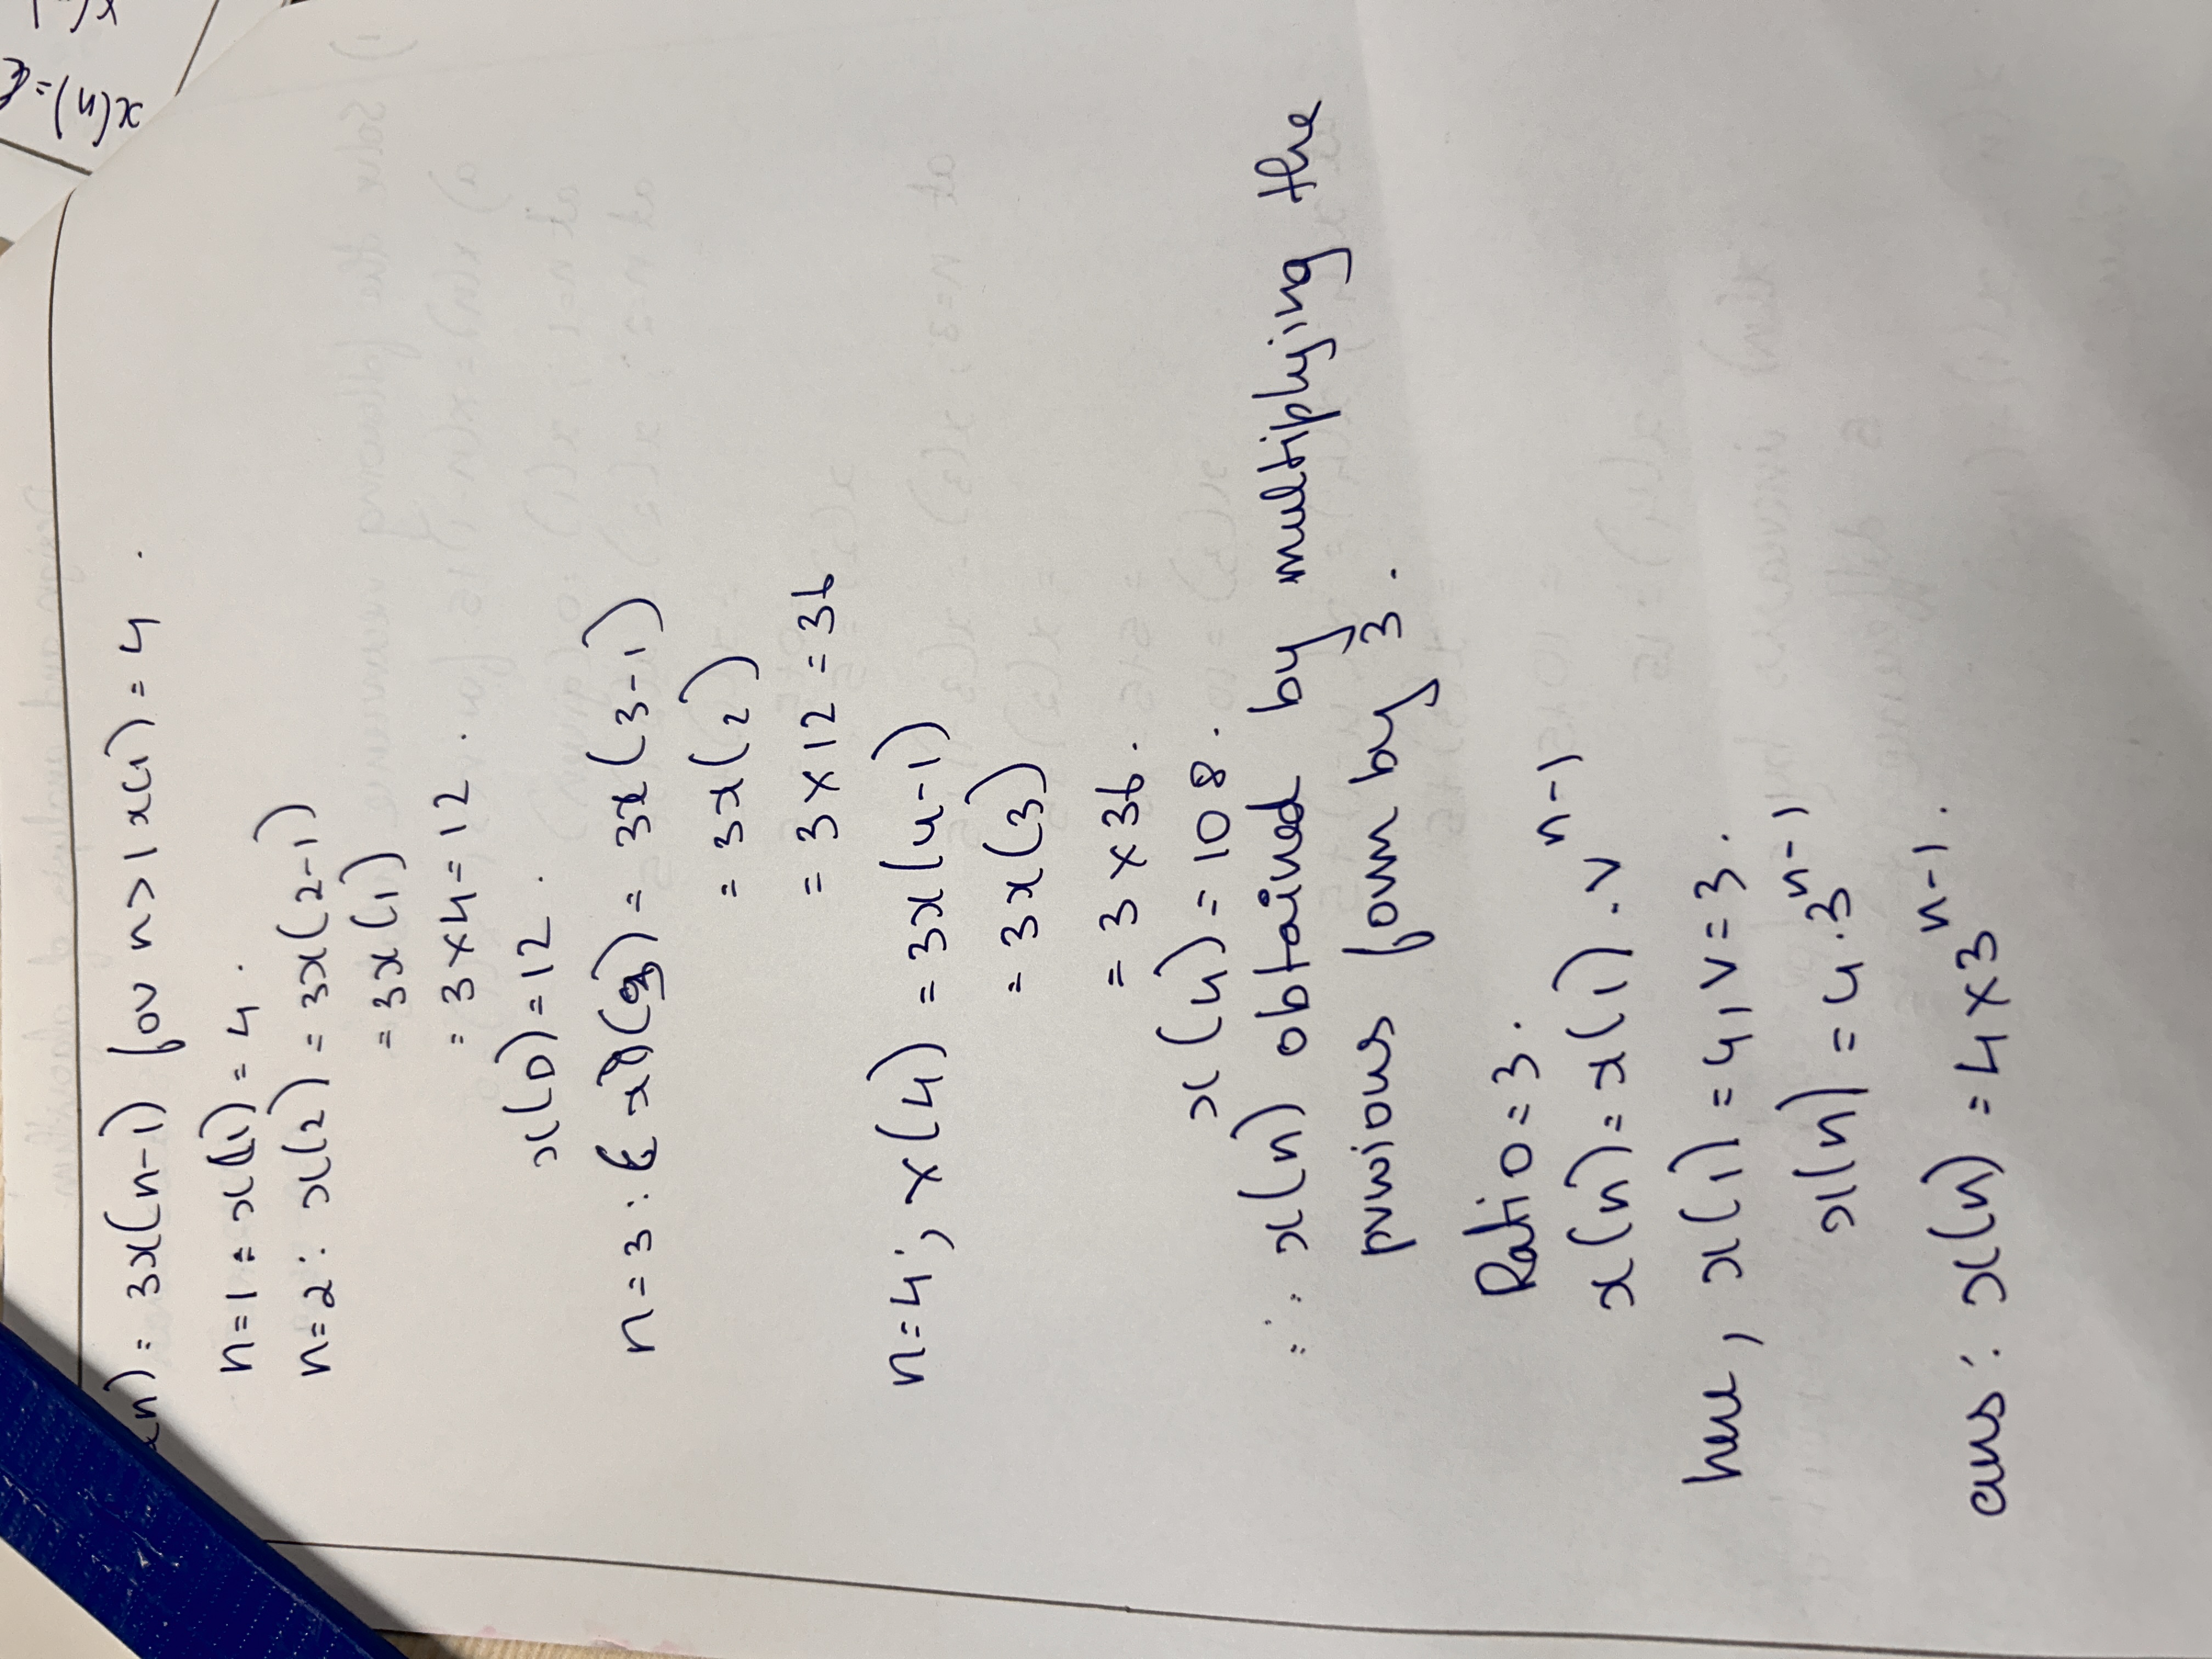 x(n) = 3x(n-1) for n>1 x(1) = 4 .
n=1 : x(1) = 4 .
n=2 : x(2) = 3x(2-1)
= 3x(1)
= 3×4 = 12 .
x(D) = 12 .
n=3 : x(3) = 3x(3-1)
= 3x(2)
= 3 × 12 = 36
n=4 ; x(4) = 3x(4-1)
= 3x(3)
= 3 × 36 .
x(4) = 108 .
∴ x(n) obtained by multiplying the
previous form by 3 .
Ratio = 3 .
x(n) = x(1) . r^n-1
here, x(1) = 4, r = 3 .
x(n) = 4 . 3^n-1
ans : x(n) = 4×3^n-1 .
x(n) =